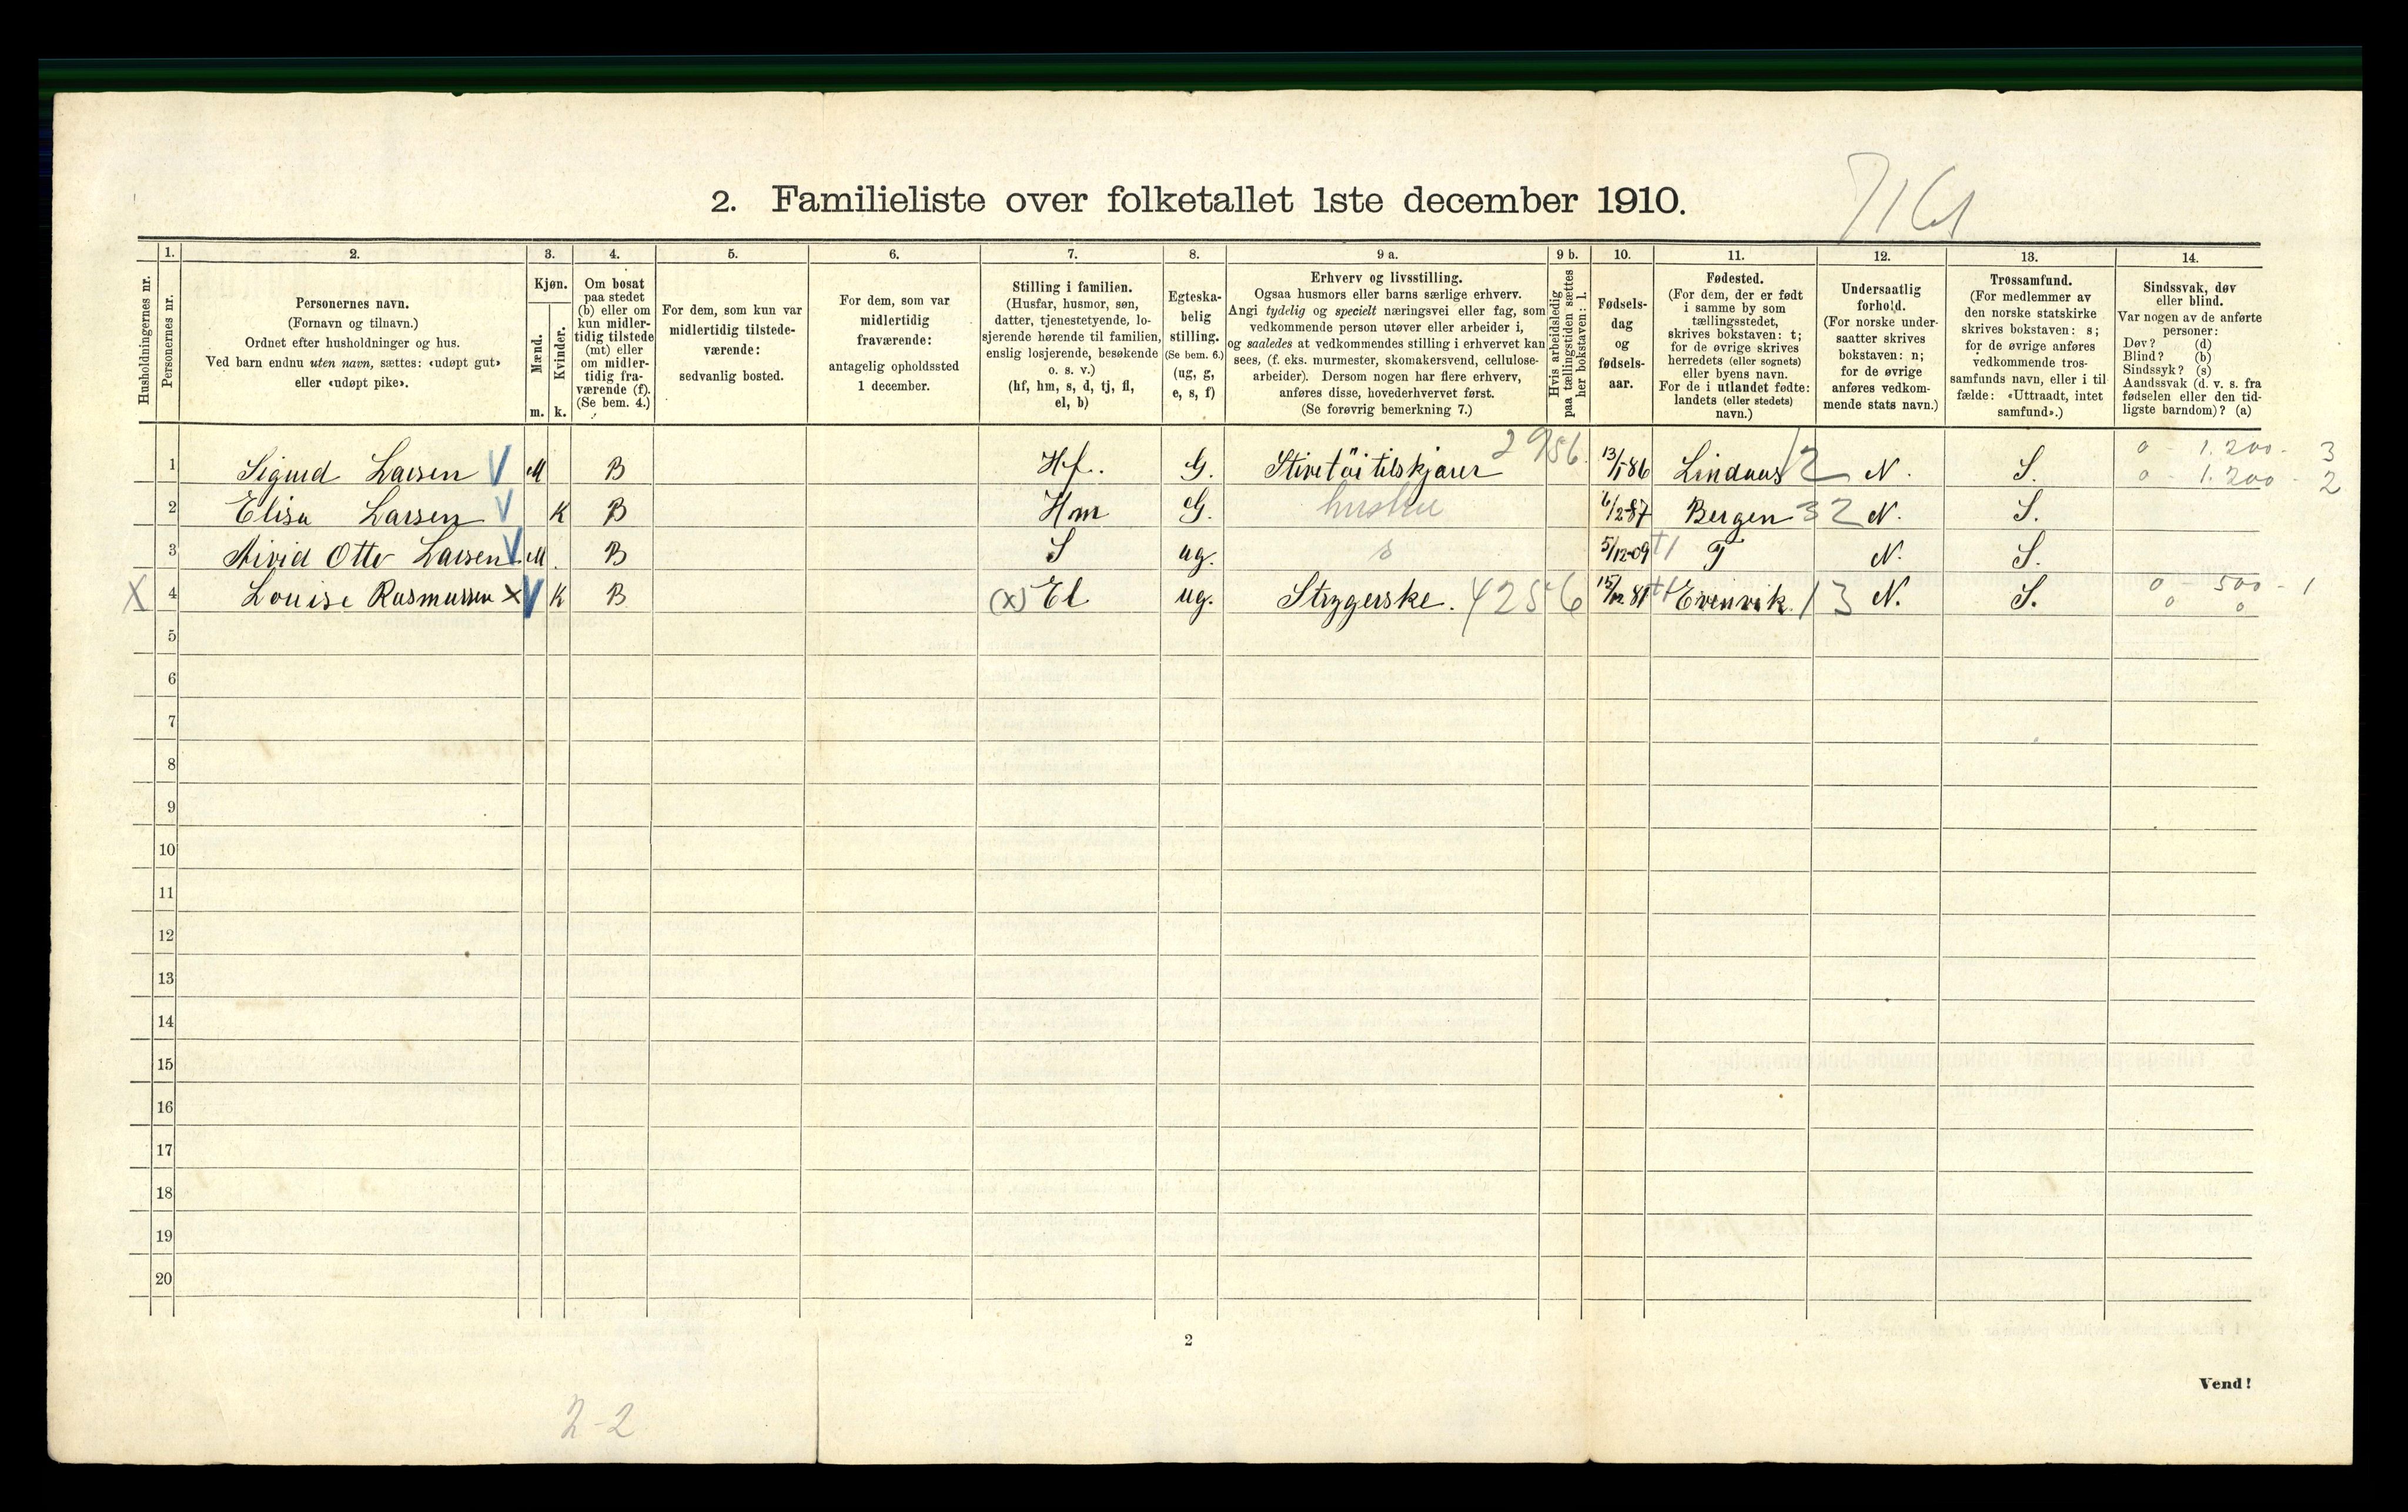 2. Familieliste over folketallet 1ste december 1910.
Husholdningernes nr.
1. Personernes nr.
2.
Personernes navn.
(Fornavn og tilnavn.)
Ordnet efter husholdninger og hus.
Ved barn endnu uten navn, sættes: «udøpt gut»
eller «udøpt pike».
3.
Kjøn.
Mænd. Kvinder.
m. k.
4.
Om bosat
paa stedet
(b) eller om
kun midler-
tidig tilstede
(mt) eller
om midler-
tidig fra-
værende (f).
(Se bem. 4.)
5.
For dem, som kun var
midlertidig tilstede-
værende:
sedvanlig bosted.
6.
For dem, som var
midlertidig
fraværende:
antagelig opholdssted
1 december.
7.
Stilling i familien.
(Husfar, husmor, søn,
datter, tjenestetyende, lo-
sjerende hørende til familien,
enslig losjerende, besøkende
o. s. v.)
(hf, hm, s, d, tj, fl,
el, b)
8.
Egteska-
belig
stilling.
(Se bem. 6.)
(ug, g,
e, s, f)
9 a.
Erhverv og livsstilling.
Ogsaa husmors eller barns særlige erhverv.
Angi tydelig og specielt næringsvei eller fag, som
vedkommende person utøver eller arbeider i,
og saaledes at vedkommendes stilling i erhvervet kan
sees, (f. eks. murmester, skomakersvend, cellulose-
arbeider). Dersom nogen har flere erhverv,
anføres disse, hovederhvervet først.
(Se forøvrig bemerkning 7.)
9 b.
Hvis arbeidsledig
paa tællingstiden sættes
her bokstaven: l.
10.
Fødsels-
dag
og
fødsels-
aar.
11.
Fødested.
(For dem, der er født
i samme by som
tællingsstedet,
skrives bokstaven: t;
for de øvrige skrives
herredets (eller sognets)
eller byens navn.
For de i utlandet fødte:
landets (eller stedets)
navn.)
12.
Undersaatlig
forhold.
(For norske under-
saatter skrives
bokstaven: n;
for de øvrige
anføres vedkom-
mende stats navn.)
13.
Trossamfund.
(For medlemmer av
den norske statskirke
skrives bokstaven: s;
for de øvrige anføres
vedkommende tros-
samfunds navn, eller i til-
fælde: «Uttraadt, intet
samfund».)
14.
Sindssvak, døv
eller blind.
Var nogen av de anførte
personer:
Døv? (d)
Blind? (b)
Sindssyk? (s)
Aandssvak (d. v. s. fra
fødselen eller den tid-
ligste barndom)? (a)
1 Sigurd Larsen V M B Hf. G. Stivetöitilskjærer 2956. 13/1-86 Lindaas 12 N. S. 0 - 1.200 - 3
0 - 1.200 - 2
2 Elisa Larsen V K B Hm G. 6/2-87 Bergen 32 N. S.
3 Arvid Otto Larsen V M. B S ug. s 5/12-09 t1 T N. S.
X 4 Louise Rasmussen X V K B (x) El ug. Strygerske. 4256 15/12 81 t1 Evenvik. 13 N. S. 0 500 - 1
0 0
5
6
7
8
9
10
11
12
13
14
15
16
17
18
19
20
2
Vend!
2-2